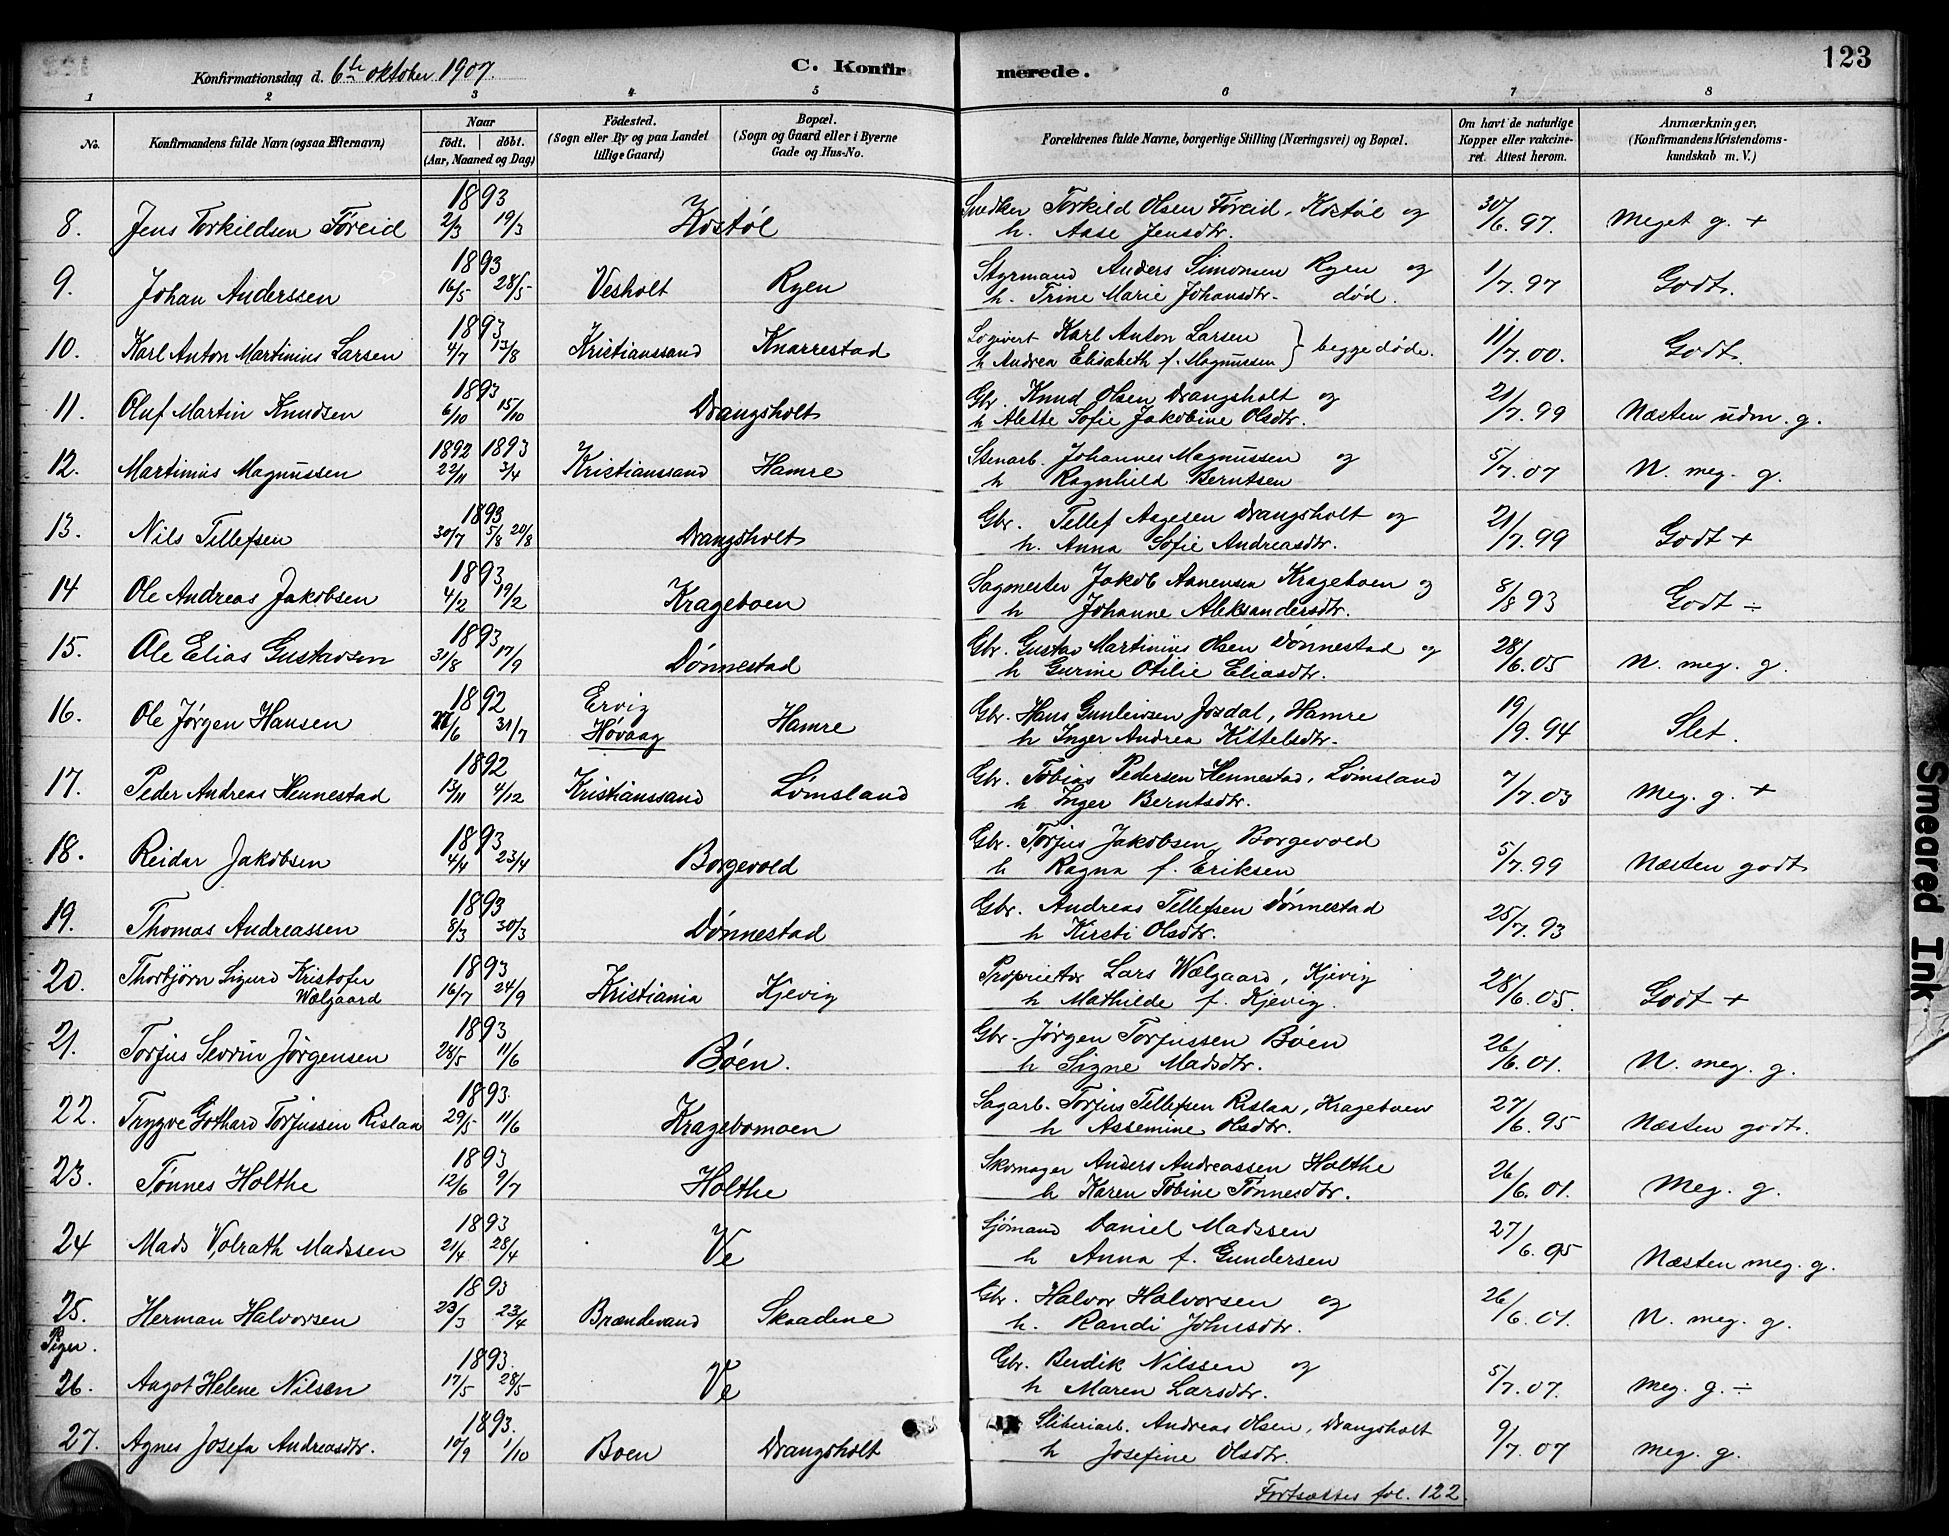 123
Konfirmationsdag d. 6te oktober 1907.
C. Konfirmerede.
1 2 3 4 5 6 7 8
No.
Konfirmandens fulde Navn (ogsaa Efternavn)
Naar
født. døbt.
(Aar, Maaned og Dag)
Fødested.
(Sogn eller By og paa Landet
tillige Gaard)
Bopæl.
(Sogn og Gaard eller i Byerne
Gade og Hus-No.
Forældrenes fulde Navne, borgerlige Stilling (Næringsvei) og Bopæl.
Om havt de naturlige
Kopper eller vakcine-
ret. Attest herom.
Anmærkninger,
(Konfirmandens Kristendoms-
kundskab m. V.)
1893
8. Jens Torkildsen Føreid 2/3 19/3 Kostøl Snedker Torkild Olsen Føreid, Kostøl og 30/6.97. Meget g. +
h. Aase Jensdtr.
1893
9. Johan Anderssen 16/5 28/5 Vesholt Ryen Styrmand Anders Simonsen Ryen og 1/7.97 Godt.
h. Trine Marie Johansdtr. død.
1893
10. Karl Anton Martinius Larsen 4/7 13/8 Kristianssand Knarrestad Løgivert Karl Anton Larsen 11/7.00. Godt.
h Andrea Elisabeth f. Magnussen } begge døde.
1893
11. Oluf Martin Knudsen 6/10 15/10 Drangsholt Gbr. Knud Olsen Drangsholt og 21/7.99 Næsten udm. g.
h Alette Sofie Jakobine Olsdtr.
1892 1893
12. Martinius Magnussen 22/11 3/4 Kristianssand Hamre Stenarb. Johannes Magnussen og 5/7.07 N. meg. g.
h Ragnhild Berntsen
1893
13. Nils Tellefsen 30/7 5/8 20/8 Drangsholt Gbr. Tellef Aagesen Drangsholt og 21/7.99 Godt +
h. Anna Sofie Andreasdtr.
1893
14 Ole Andreas Jakobsen 4/2 19/2 Krageboen Sagmester Jakob Aanensen Krageboen og 8/8 93 Godt ÷
h Johanne Aleksandersdtr.
1893
15. Ole Elias Gustavsen 31/8 17/9 Dønnestad Gbr. Gustav Martinius Olsen Dønnestad og 28/6.05 N. meg. g.
h Gurine Otilie Eliasdtr.
1892
16. Ole Jørgen Hansen 27/6 31/7 Ervig Høvaag Hamre Gbr. Hans Gunleivsen Josdal, Hamre 19/9.94 Slet.
h Inger Andrea Kittelsdtr.
1892
17. Peder Andreas Hennestad 13/11 4/12 Kristianssand Lømsland Gbr. Tobias Pedersen Hennestad, Lømsland 7/7.03 Meg. g. +
h Inger Berntsdtr.
1893
18. Reidar Jakobsen 4/4 23/4 Borgevold Gbr. Torjus Jakobsen, Borgevold 5/7.99 Næsten godt
h Ragna f. Eriksen
1893
19. Thomas Andreassen 8/3 30/3 Dønnestad Gbr. Andreas Tellefsen Dønnestad 25/7.93
h Kirsti Olsdtr.
1893
20. Thorbjørn Sigurd Kristofer Wælgaard 16/7 24/9 Kristiania Kjevig Proprietær Lars Wælgaard, Kjevig 28/6.05. Godt +
h Mathilde f. Kjevig.
1893
21. Torjus Severin Jørgensen 28/5 11/6 Bøen. Gbr. Jørgen Torjussen Bøen 26/6.01. N. meg. g.
h Signe Madsdtr.
1893.
22. Trygve Gothard Torjussen Rislaa 29/5 11/6 Kragebomoen Sagarb. Torjus Tellefsen Rislaa, Krageboen 27/6.95 Næsten godt.
h Assemine Olsdtr.
1893
23. Tønnes Holthe 12/6 9/7 Holthe Skomager Anders Andreassen Holthe 26/6.01. Meg. g.
h Karen Tobine Tønnesdtr.
1893
24 Mads Volrath Madssen 21/4 28/4 Ve Sjømand Daniel Madssen 27/6.95 Næsten meg. g.
h Anna f. Gundersen
1893
25. Herman Halvorsen 23/3 23/4 Brændevand Skaadene Gbr. Halvor Halvorsen og 26/6.01. N. meg. g.
h. Randi Johnsdtr.
Piger.
1893.
26. Aagot Helene Nilsen 17/5 28/5 Ve Gbr. Bendik Nilssen og 5/7.07. Meg. g. ÷
h Maren Larsdtr.
1893.
27. Agnes Josefa Andreasdtr. 10/9 1/10 Boen Drangsholt Sliberiarb. Andreas Olsen, Drangsholt 9/7.07 Meg. g.
h Josefine Olsdtr.
Fortsættes fol. 122.
Smeared Ink.